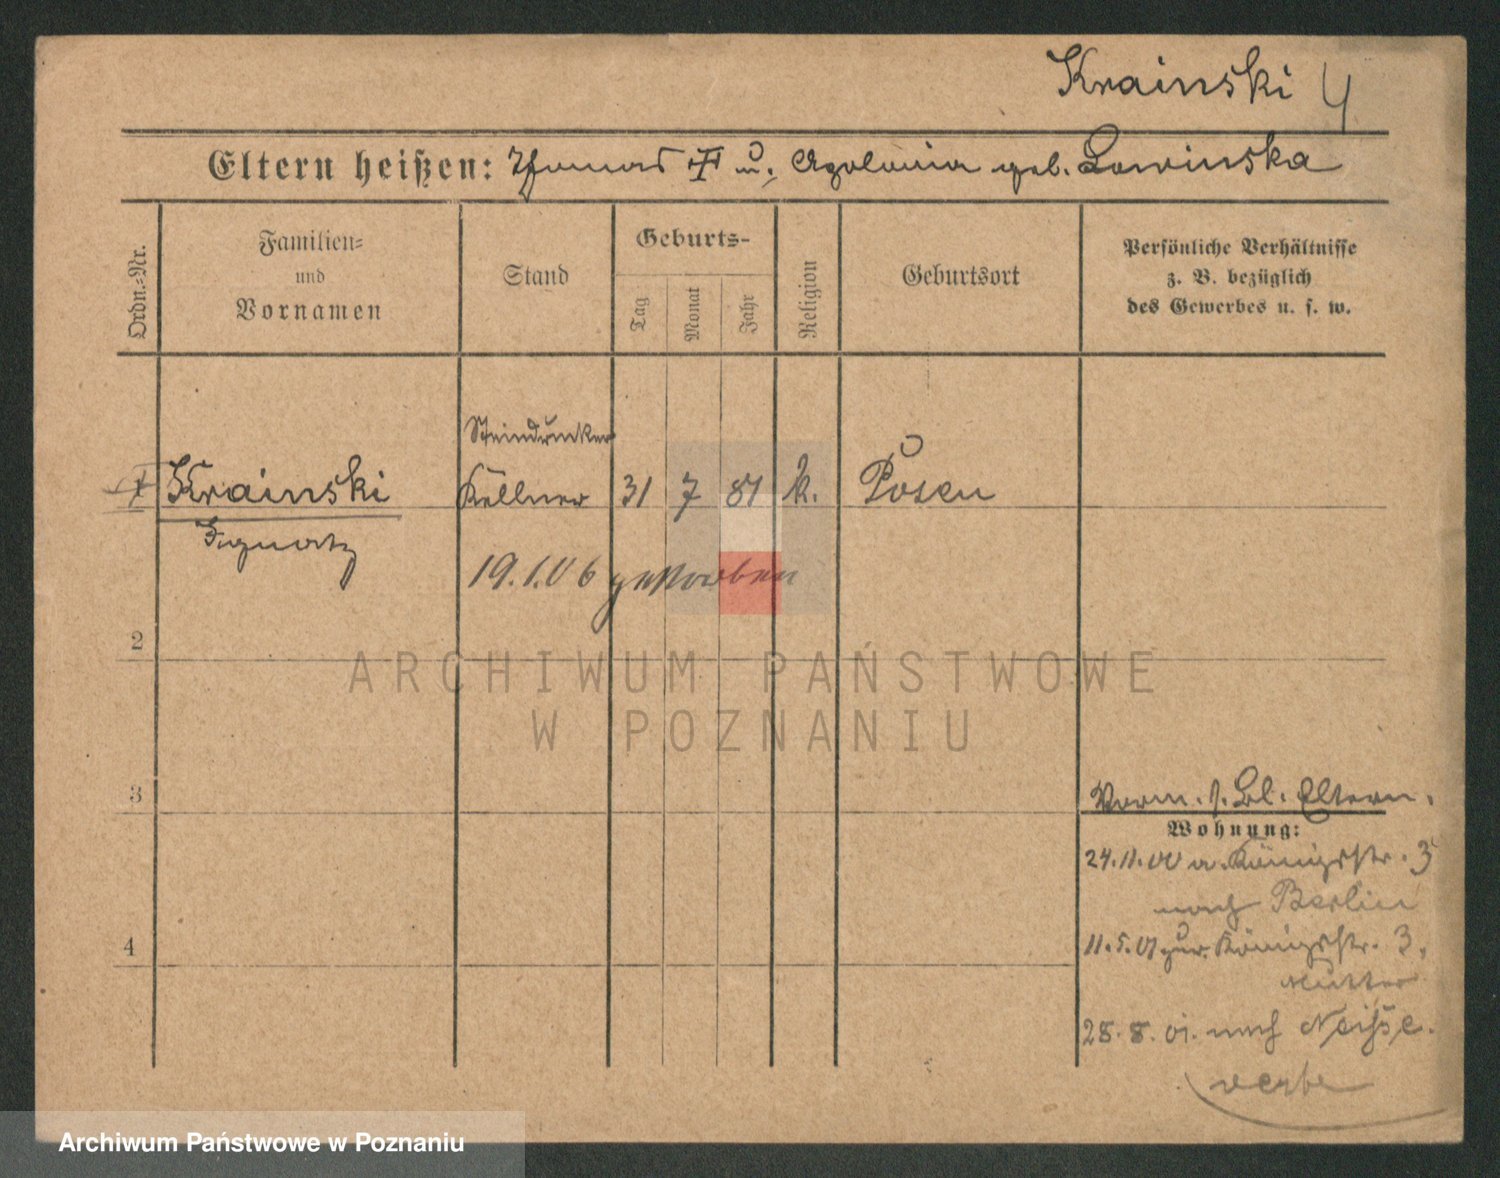 Krainski 4
Eltern heißen: Thomas † u. Apolonia geb. Lewinska
Ordn.-Nr.
Familien-
und
Vornamen
Stand
Geburts-
Tag
Monat
Jahr
Religion
Geburtsort
Persönliche Verhältnisse
z. B. bezüglich
des Gewerbes u. s. w.
Steindrucker
1 Krainski Kellner 31 7 81 k. Posen
Ignatz
19.1.06 gestorben
2
3
4
Vorm. s. Bl. Eltern.
Wohnung:
24.11.00 a. Königstr. 3
nach Berlin
11.5.01 zur. Königstr. 3.
Mutter
28.8.01. nach Neisse.
ARCHIWUM PAŃSTWOWE
W POZNANIU
Archiwum Państwowe w Poznaniu